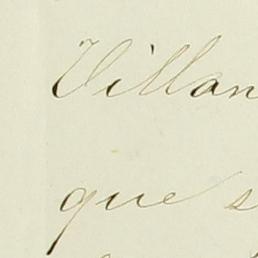 Villan
que s